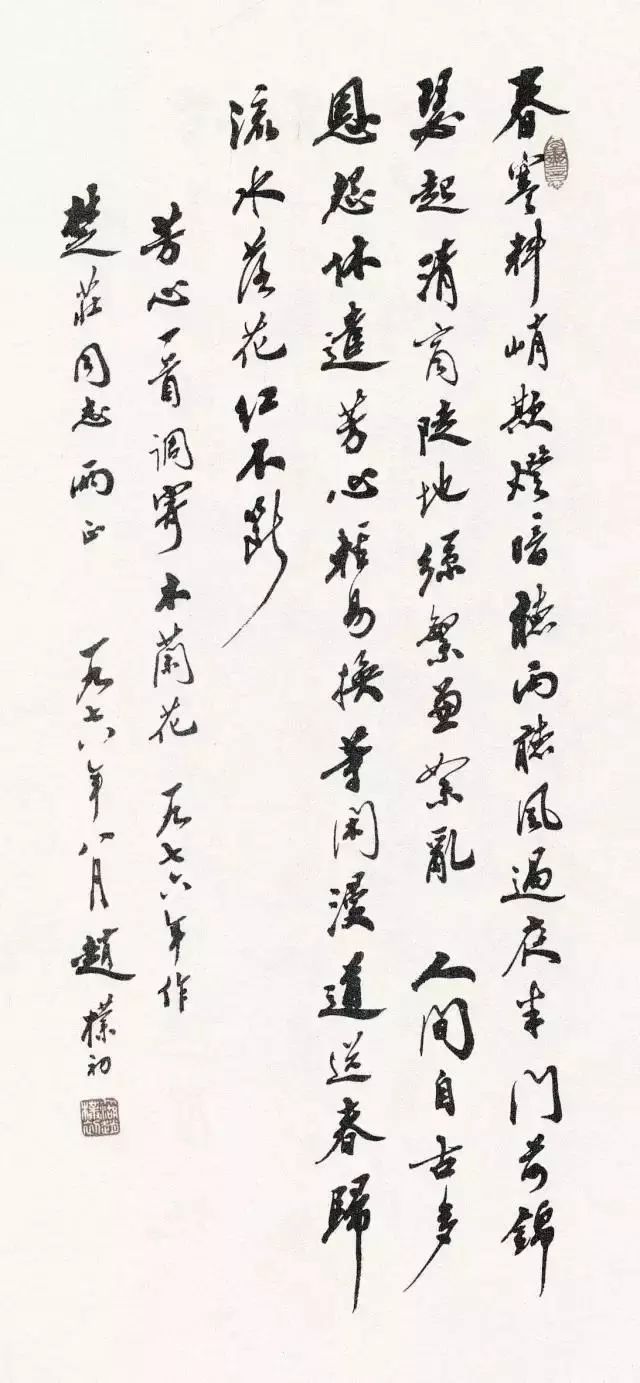 春寒料峭欺燈暗聽雨聽風過夜半門前錦
瑟起清商陡地絲繁兼絮亂 人間自古多
恩怨休遣芳心輕易換等閑漫道送春歸
流水落花紅不斷
芳心一首調寄木蘭花 一九七六年作
楚莊同志兩正 一九七八年八月 趙樸初